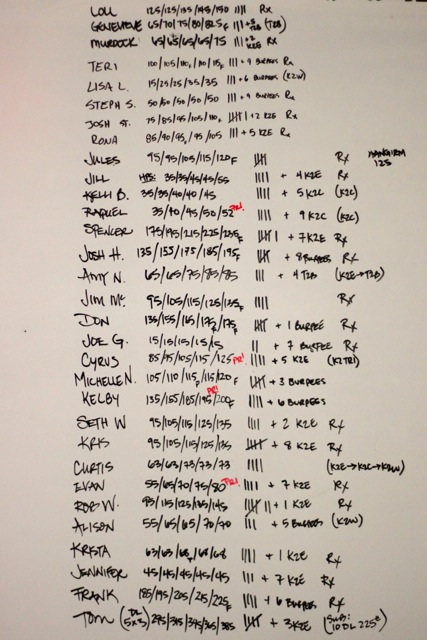 LOLL 125/125/135/145/150 |||| Rx
GENEVIEVE 65/70/75/80/82.5F |||+5 T2B (T2B)
MURDOCK 65/65/65/65/75 |||+2 K2E Rx
TERI 100/105/110/110/115F ||| + 9 BURPEES Rx
LISA L. 15/25/25/35/35 ||| + 6 BURPEES (K2W)
STEPH S. 50/50/50/50/50 ||| + 9 BURPEES Rx
JOSH ST. 75/85/95/105/110F |||| + 2 K2E Rx
RONA 85/90/95/95/105 ||| + 5 K2E Rx
JULES 95/95/105/115/120F |||| Rx 125
JILL HPS: 35/35/45/45/55 |||| + 4 K2E Rx
KELLI B. 35/35/40/40/45 |||| + 5 K2C (K2C)
RAQUEL 35/40/45/50/52 PR! |||| + 9 K2C (K2C)
SPENCER 175/195/215/225/235F |||| | + 7 K2E Rx
JOSH H. 135/155/175/185/195F |||| + 8 BURPEES Rx
AMY N. 65/65/75/85/85 |||| + 4 T2B (K2E→T2B)
JIM Mc. 95/105/115/125/125F |||| Rx
DON 135/155/165/175F/175F |||| + 1 BURPEE Rx
JOE G. 15/15/15/15/15 || + 7 BURPEE Rx
CYRUS 85/95/105/115/125 PR! |||| + 5 K2E (K2TRI)
MICHELLE N. 105/110/115F/115/120F |||| + 3 BURPEES
KELBY 135/155/185/195 PR!/200F |||| + 6 BURPEES
SETH W 95/105/115/125/135 |||| + 2 K2E Rx
KRIS 95/105/115/125/135 |||| + 8 K2E Rx
CURTIS 63/63/73/73/73 |||| (K2E→K2C→K2W)
EVAN 55/65/70/75/80 PR! |||| + 7 K2E Rx
ROB W. 95/115/125/135/145 |||| || + 1 K2E Rx
ALISON 55/65/65/70/70 |||| + 5 BURPEES (K2W)
KRISTA 63/63/68F/68/68 |||| + 1 K2E Rx
JENNIFER 45/45/45/45/45 |||| + 7 K2E Rx
FRANK 185/195/205/215/225F |||| + 6 BURPEES Rx
TOM (DL 5x3) 295/345/345/365/385 |||| + 3 K2E (SUB: 10 DL 225#)